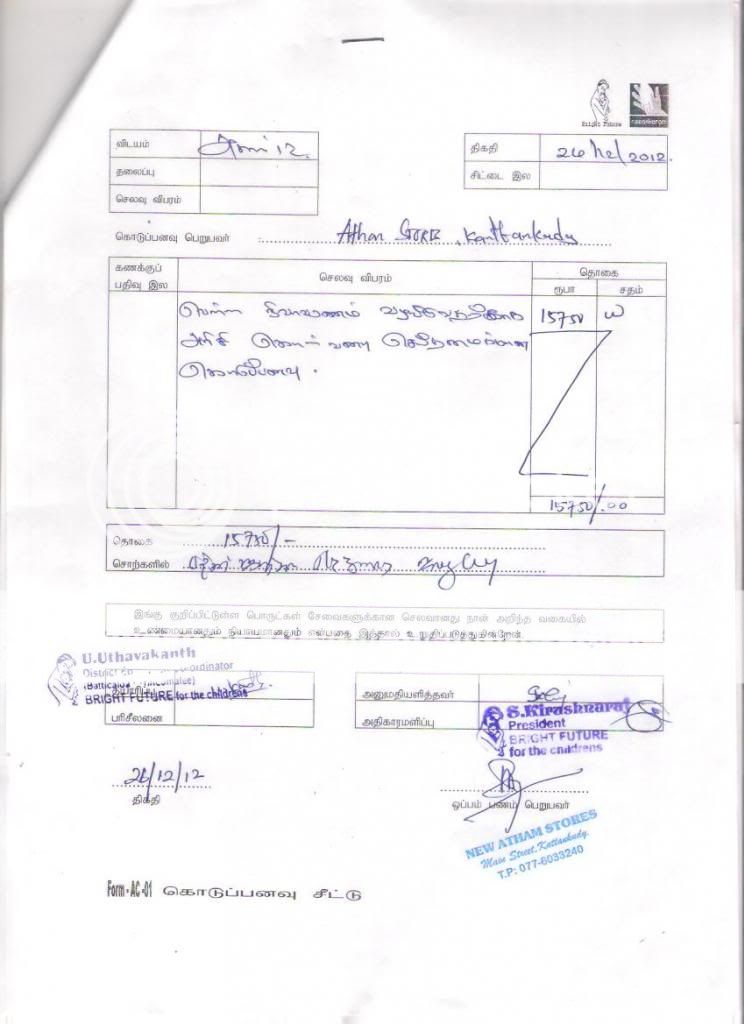 Bright Future
neesakaram
விடயம்
12.
தலைப்பு
செலவு விபரம்
திகதி 26/12/2012.
சிட்டை இல
கொடுப்பனவு பெறுபவர் : Athan Store, Kattankudy
கணக்குப் பதிவு இல
செலவு விபரம்
தொகை
ரூபா சதம்
வெள்ள நிவாரணம் 15750
அரிசி
கொடுப்பனவு .
15750/.00
தொகை 15750/-
சொற்களில்
இங்கு குறிப்பிட்டுள்ள பொருட்கள் சேவைகளுக்கான செலவானது நான் அறிந்த வகையில்
உண்மையானதும் நியாயமானதும் என்பதை இத்தால் உறுதிப்படுத்துகின்றேன்.
U.Uthavakanth
District Co-ordinator
(Batticaloa
BRIGHT FUTURE for the childrens
தயாரிப்பு
பரிசீலனை
அனுமதியளித்தவர்
அதிகாரமளிப்பு
S.Kirashnaraj
President
BRIGHT FUTURE
for the childrens
26/12/12
திகதி
ஒப்பம் பணம் பெறுபவர்
NEW ATHAM STORES
Main Street, Kattankudy.
T.P: 077-6033240
Form - AC -01 கொடுப்பனவு சீட்டு